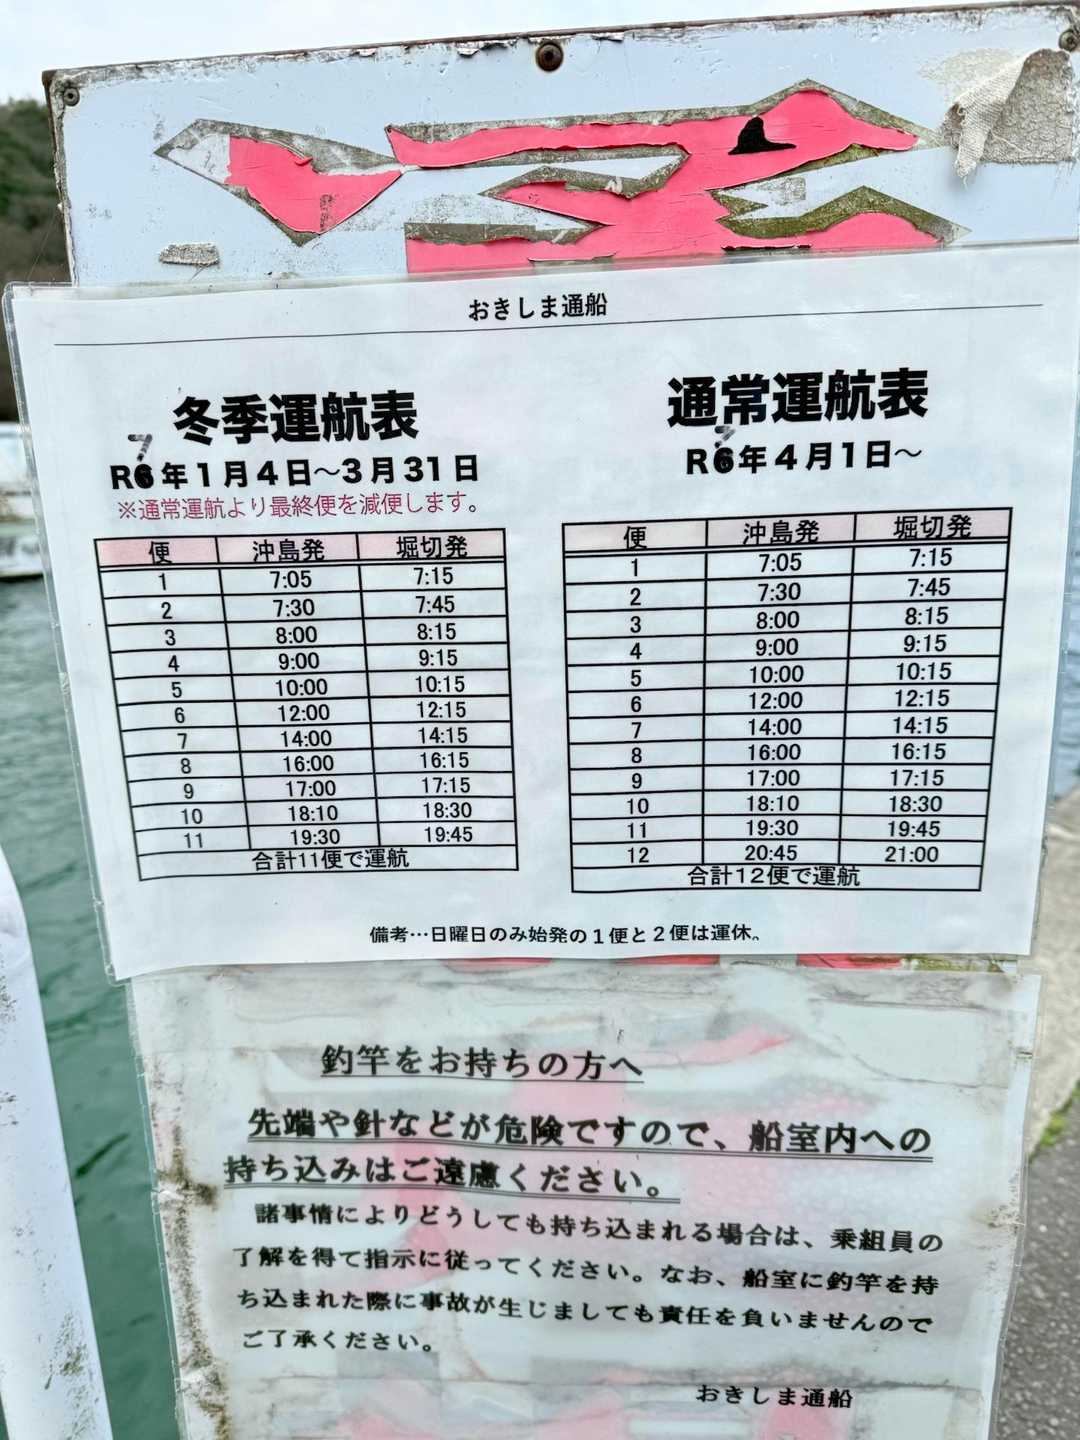 おきしま通船
冬季運航表
R7年1月4日～3月31日
※通常運航より最終便を減便します。
便 沖島発 堀切発
1 7:05 7:15
2 7:30 7:45
3 8:00 8:15
4 9:00 9:15
5 10:00 10:15
6 12:00 12:15
7 14:00 14:15
8 16:00 16:15
9 17:00 17:15
10 18:10 18:30
11 19:30 19:45
合計11便で運航
通常運航表
R7年4月1日～
便 沖島発 堀切発
1 7:05 7:15
2 7:30 7:45
3 8:00 8:15
4 9:00 9:15
5 10:00 10:15
6 12:00 12:15
7 14:00 14:15
8 16:00 16:15
9 17:00 17:15
10 18:10 18:30
11 19:30 19:45
12 20:45 21:00
合計12便で運航
備考…日曜日のみ始発の1便と2便は運休。
釣竿をお持ちの方へ
先端や針などが危険ですので、船室内への
持ち込みはご遠慮ください。
諸事情によりどうしても持ち込まれる場合は、乗組員の
了解を得て指示に従ってください。なお、船室に釣竿を持
ち込まれた際に事故が生じましても責任を負いませんので
ご了承ください。
おきしま通船